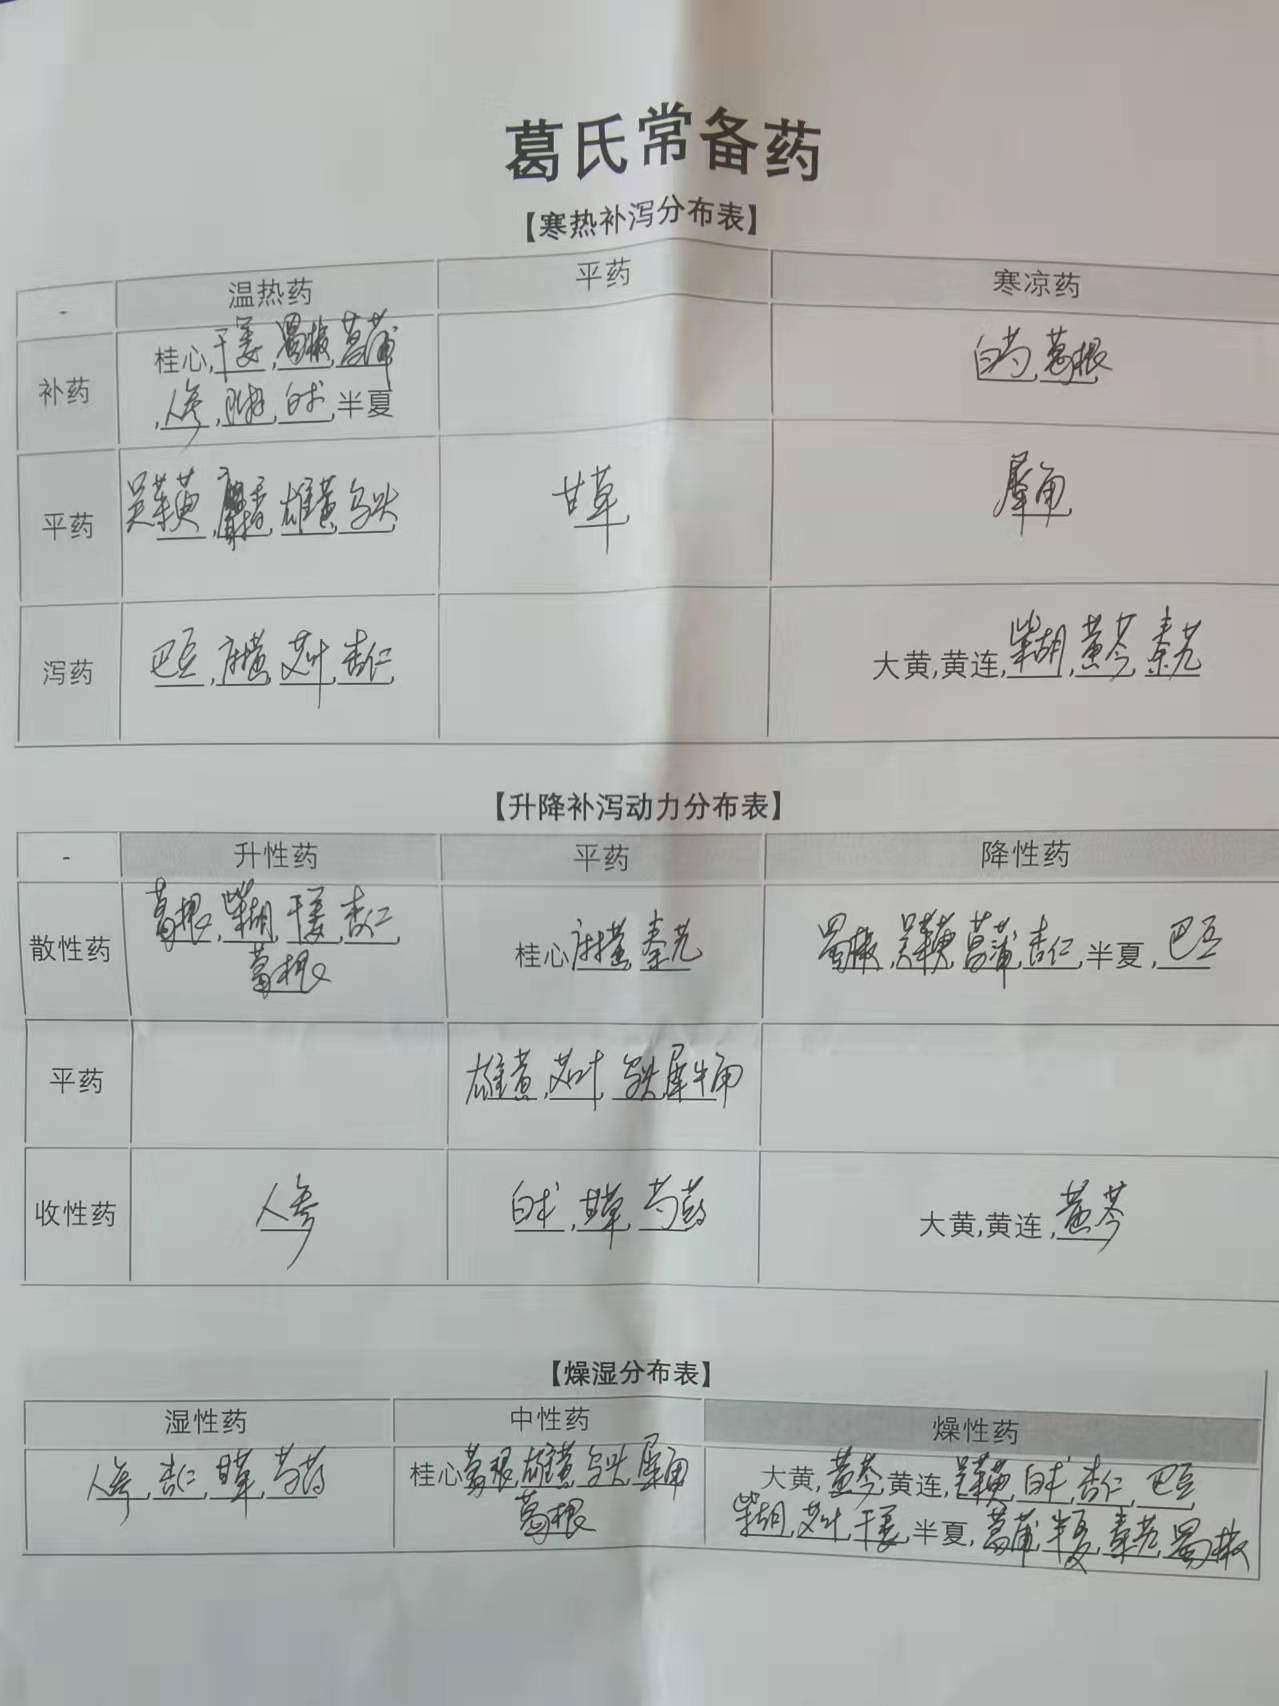 葛氏常备药
【寒热补泻分布表】
- 温热药 平药 寒凉药
补药 桂心,干姜,蜀椒,菖蒲 白芍,葛根
,人参,,白术,半夏
平药 吴茱萸,麝香,雄黄,乌头 甘草 犀角
泻药 巴豆,麻黄,艾叶,杏仁 大黄,黄连,柴胡,黄芩,秦艽
【升降补泻动力分布表】
- 升性药 平药 降性药
散性药 葛根,柴胡,干姜,杏仁 桂心,麻黄,秦艽 蜀椒,吴茱萸,菖蒲,杏仁,半夏,巴豆
葛根
平药 雄黄,艾叶,乌头,犀牛角
收性药 人参 白术,甘草,芍药 大黄,黄连,黄芩
【燥湿分布表】
湿性药 中性药 燥性药
人参,杏仁,甘草,芍药 桂心,葛根,雄黄,乌头,犀角 大黄,黄芩,黄连,吴茱萸,白术,杏仁,巴豆
葛根 柴胡,艾叶,干姜,半夏,菖蒲,半夏,秦艽,蜀椒